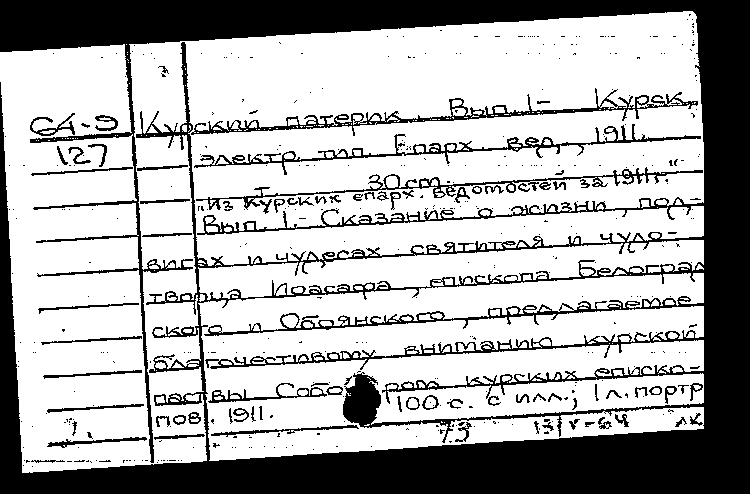 64-9 Курский патерик. Вып. 1- Курск,
127 электр. тип. Епарх. вед., 1911.
1 30 cm.
„Из Курских епарх. ведомостей за 1911 г.“
Вып. 1.- Сказание о жизни, под-
вигах и чудесах святителя и чудо-
творца Иоасафа, епископа Белоград
ского и Обоянского, предлагаемое
благочестивому вниманию курской
паствы Собо ром курских еписко-
пов. 1911. 100 с. с илл.; 1 л. портр
73 13/V-64 лк